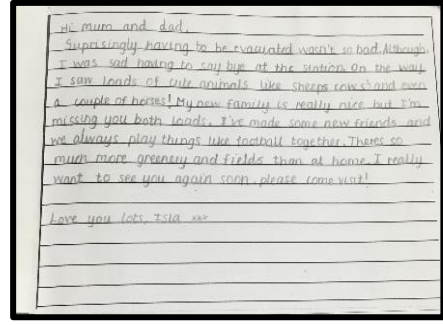 Hi mum and dad,
Suprisingly having to be evacuated wasn't so bad. Although
I was sad having to say bye at the station. On the way
I saw loads of cute animals like sheeps cows and even
a couple of horses! My new family is really nice but I'm
missing you both loads. I've made some new friends and
we always play things like football together. Theres so
much more greenery and fields than at home. I really
want to see you again soon, please come visit!
Love you lots, Isla xxx